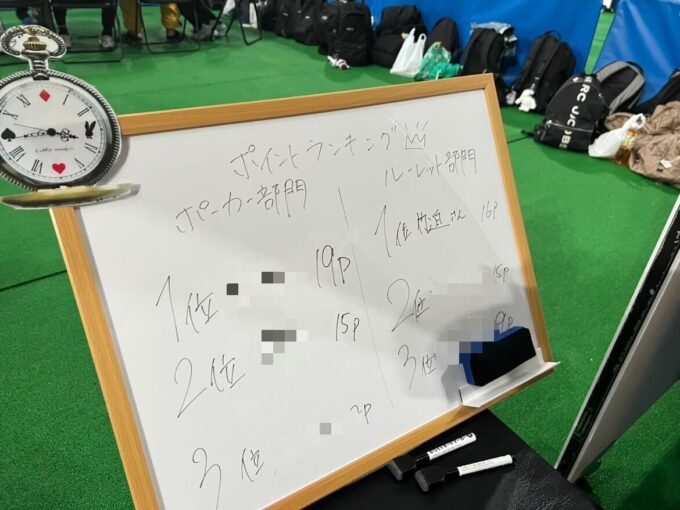 ポイントランキング
ポーカー部門
1位 19P
2位 15P
3位 2P
ルーレット部門
1位 さん 16P
2位 15P
3位 9P